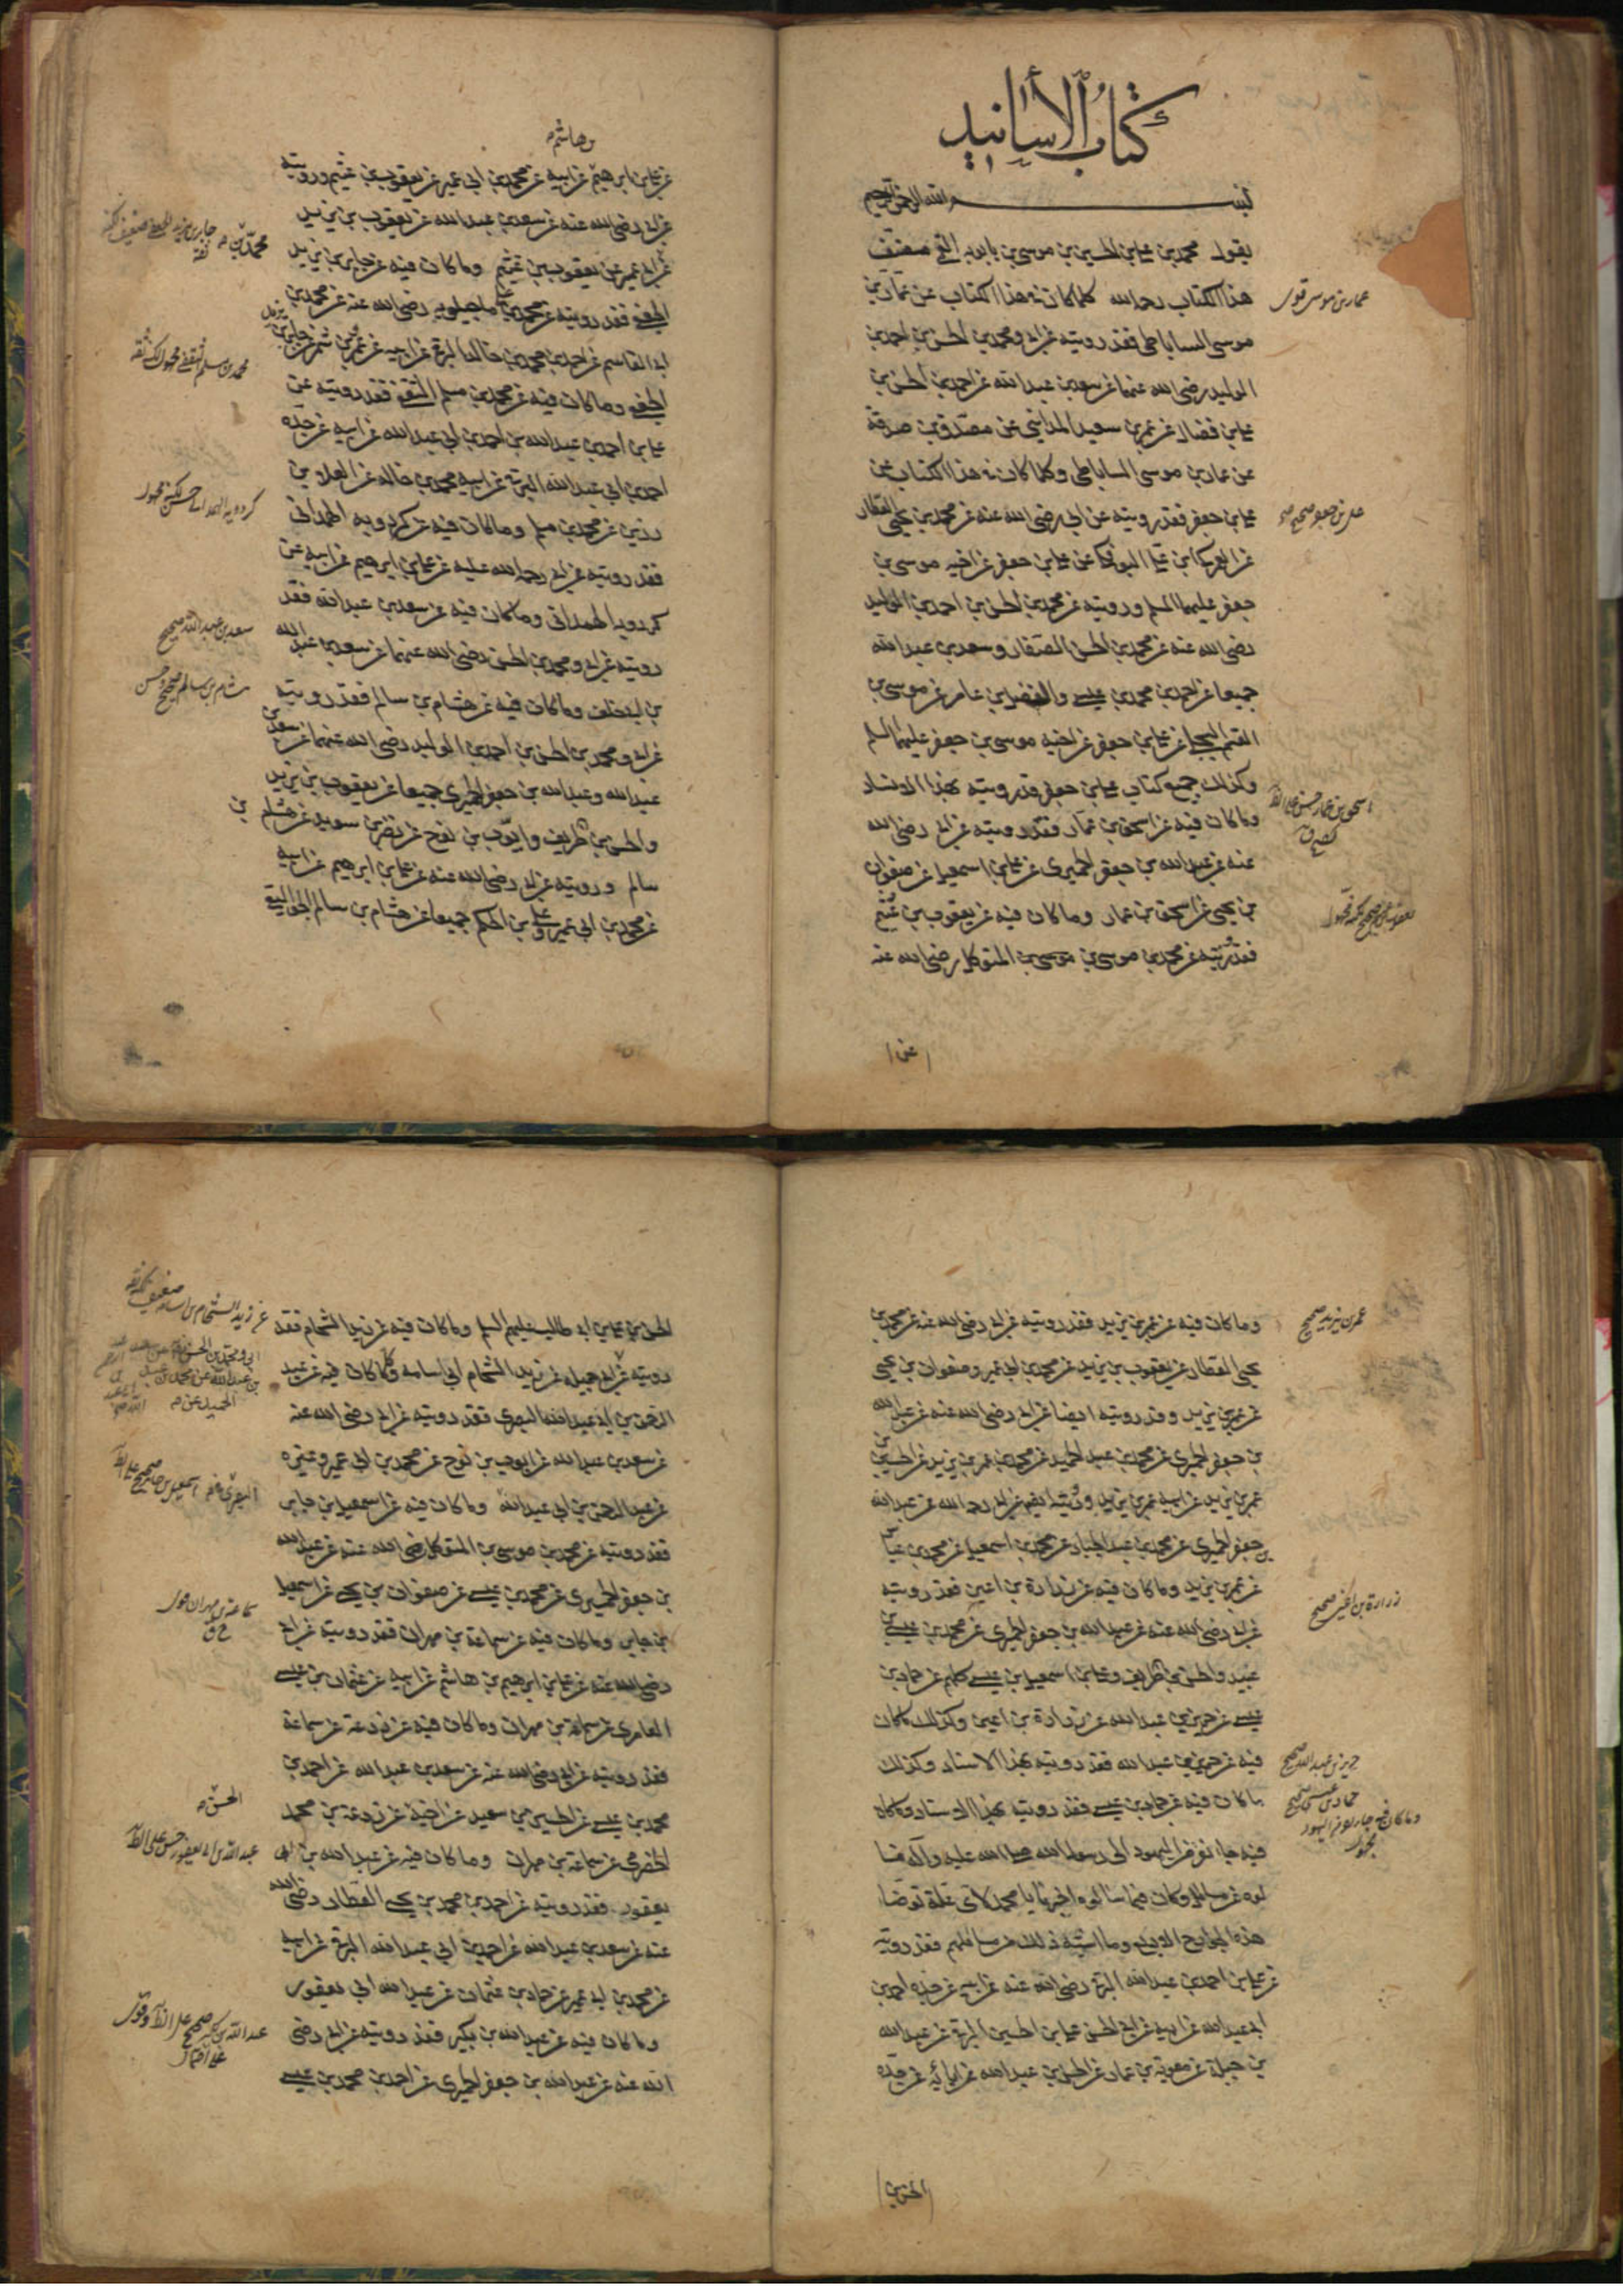 كتاب الأسانيد
بسم الله الرحمن الرحيم
يقول محمد بن علي بن الحسين بن موسى بن بابويه القمي مصنف
هذا الكتاب رحمه الله كلما كان في هذا الكتاب عن عمار بن
موسى الساباطي فقد رويته عن ابي ومحمد بن الحسن بن احمد بن
الوليد رضي الله عنهما عن سعد بن عبد الله عن احمد بن الحسن بن
علي بن فضال عن عمرو بن سعيد المدائني عن مصدق بن صدقة
عن عمار بن موسى الساباطي وكلما كان في هذا الكتاب عن
علي بن جعفر فقد رويته عن ابي رضي الله عنه عن محمد بن يحيى العطار
عن العمركي بن علي البوفكي عن علي بن جعفر عن اخيه موسى بن
جعفر عليهما السلم ورويته عن محمد بن الحسن بن احمد بن الوليد
رضي الله عنه عن محمد بن الحسن الصفار وسعد بن عبد الله
جميعا عن احمد بن محمد بن عيسى والفضل بن عامر عن موسى بن
القسم البجلي عن علي بن جعفر عن اخيه موسى بن جعفر عليهما السلم
وكذلك جميع كتاب علي بن جعفر قد رويته بهذا الاسناد
وما كان فيه عن اسحق بن عمار فقد رويته عن ابي رضي الله
عنه عن عبد الله بن جعفر الحميري عن علي بن اسمعيل عن صفوان
بن يحيى عن اسحق بن عمار وما كان فيه عن يعقوب بن عثيم
فقد رويته عن محمد بن موسى بن موسى بن المتوكل رضي الله عنه
عمار بن موسى قوي
علي بن جعفر صحيح
اسحق بن عمار حسن
عن
وهاشم
عن علي بن ابرهيم عن ابيه عن محمد بن ابي عمير عن يعقوب بن عثيم ورويته
عن ابي رضي الله عنه عن سعد بن عبد الله عن يعقوب بن يزيد
عن ابي عمير عن يعقوب بن عثيم وما كان فيه عن جابر بن يزيد
الجعفي فقد رويته عن محمد بن علي ماجيلويه رضي الله عنه عن محمد بن
ابي القاسم عن احمد بن محمد بن خالد البرقي عن ابيه عن عمرو بن شمر عن جابر بن يزيد
الجعفي وما كان فيه عن محمد بن مسلم الثقفي فقد رويته عن
علي بن احمد بن عبد الله بن احمد بن ابي عبد الله عن ابيه عن جده
احمد بن ابي عبد الله البرقي عن ابيه محمد بن خالد عن العلاء بن
رزين عن محمد بن مسلم وما كان فيه عن كردويه الهمداني
فقد رويته عن ابي رحمه الله عليه عن علي بن ابرهيم عن ابيه عن
كردويه الهمداني وما كان فيه عن سعد بن عبد الله فقد
رويته عن ابي ومحمد بن الحسن رضي الله عنهما عن سعد بن عبد الله
بن ابي خلف وما كان فيه عن هشام بن سالم فقد رويته
عن ابي ومحمد بن الحسن بن احمد بن الوليد رضي الله عنهما عن سعد بن
عبد الله وعبد الله بن جعفر الحميري جميعا عن يعقوب بن يزيد
والحسن بن ظريف وايوب بن نوح عن نضر بن سويد عن هشام بن
سالم ورويته عن ابي رضي الله عنه عن علي بن ابرهيم عن ابيه
عن محمد بن ابي عمير وعلي بن الحكم جميعا عن هشام بن سالم الجواليقي
سعد بن عبد الله صحيح
وما كان فيه عن عمر بن يزيد فقد رويته عن ابي رضي الله عنه عن محمد بن
يحيى العطار عن يعقوب بن يزيد عن محمد بن ابي عمير وصفوان بن يحيى
عن عمر بن يزيد وقد رويته ايضا عن ابي رضي الله عنه عن عبد الله
بن جعفر الحميري عن محمد بن عبد الحميد عن محمد بن عمر بن يزيد عن الحسين بن
عمر بن يزيد عن ابيه عمر بن يزيد ورويته ايضا عن ابي رحمه الله عن عبد الله
بن جعفر الحميري عن محمد بن عبد الجبار عن محمد بن اسمعيل عن محمد بن عباس
عن عمر بن يزيد وما كان فيه عن زرارة بن اعين فقد رويته
عن ابي رضي الله عنه عن عبد الله بن جعفر الحميري عن محمد بن عيسى بن
عبيد والحسن بن ظريف وعلي بن اسمعيل بن عيسى كلهم عن حماد بن
عيسى عن حريز بن عبد الله عن زرارة بن اعين وكذلك ما كان
فيه عن حريز بن عبد الله فقد رويته بهذا الاسناد وكذلك
ما كان فيه عن حماد بن عيسى فقد رويته بهذا الاسناد وما كان
فيه جاء نفر من اليهود الى رسول الله صلى الله عليه وآله فسا
لوه عن مسائل وكان فيما سالوه اخبرنا يا محمد لاي علة توضا
هذه الجوارح الاربع وما اشبه ذلك من مسائلهم فقد رويته
عن علي بن احمد بن عبد الله البرقي رضي الله عنه عن ابيه عن جده احمد بن
ابي عبد الله عن ابيه عن ابي الحسن علي بن الحسين البرقي عن عبد الله
بن جبلة عن معوية بن عمار عن الحسن بن عبد الله عن آبائه عن جده
عمر بن يزيد صحيح
زرارة بن اعين صحيح
حريز بن عبد الله صحيح
حماد بن عيسى صحيح
الحسن بن
الحسن بن علي بن ابي طالب عليهم السلم وما كان فيه عن زيد الشحام فقد
رويته عن ابي جميله عن زيد الشحام ابي اسامه وكلما كان فيه عن عبد
الرحمن بن ابي عبد الله البصري فقد رويته عن ابي رضي الله عنه
عن سعد بن عبد الله عن ايوب بن نوح عن محمد بن ابي عمير وغيره
عن عبد الرحمن بن ابي عبد الله وما كان فيه عن اسمعيل بن جابر
فقد رويته عن محمد بن موسى بن المتوكل رضي الله عنه عن عبد الله
بن جعفر الحميري عن محمد بن عيسى عن صفوان بن يحيى عن اسمعيل
بن جابر وما كان فيه عن سماعة بن مهران فقد رويته عن ابي
رضي الله عنه عن علي بن ابرهيم بن هاشم عن ابيه عن عثمان بن عيسى
العامري عن سماعة بن مهران وما كان فيه عن زرعة عن سماعة
فقد رويته عن ابي رضي الله عنه عن سعد بن عبد الله عن احمد بن
محمد بن عيسى عن الحسين بن سعيد عن اخيه عن زرعة بن محمد
الحضرمي عن سماعة بن مهران وما كان فيه عن عبد الله بن ابي
يعفور فقد رويته عن احمد بن محمد بن يحيى العطار رضي الله
عنه عن سعد بن عبد الله عن احمد بن ابي عبد الله البرقي عن ابيه
عن محمد بن ابي عمير عن حماد بن عثمان عن عبد الله ابي يعفور
وما كان فيه عن عبد الله بن بكير فقد رويته عن ابي رضي
الله عنه عن عبد الله بن جعفر الحميري عن احمد بن محمد بن عيسى
الحسن